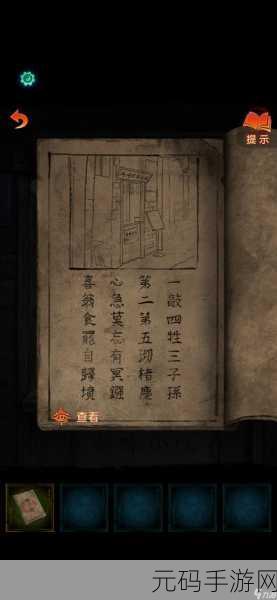 提示
一敲四牲三子孫
第二第五沏楮塵
心急莫忘有冥鏹
喜翁食罷自歸境
查看
元码手游网